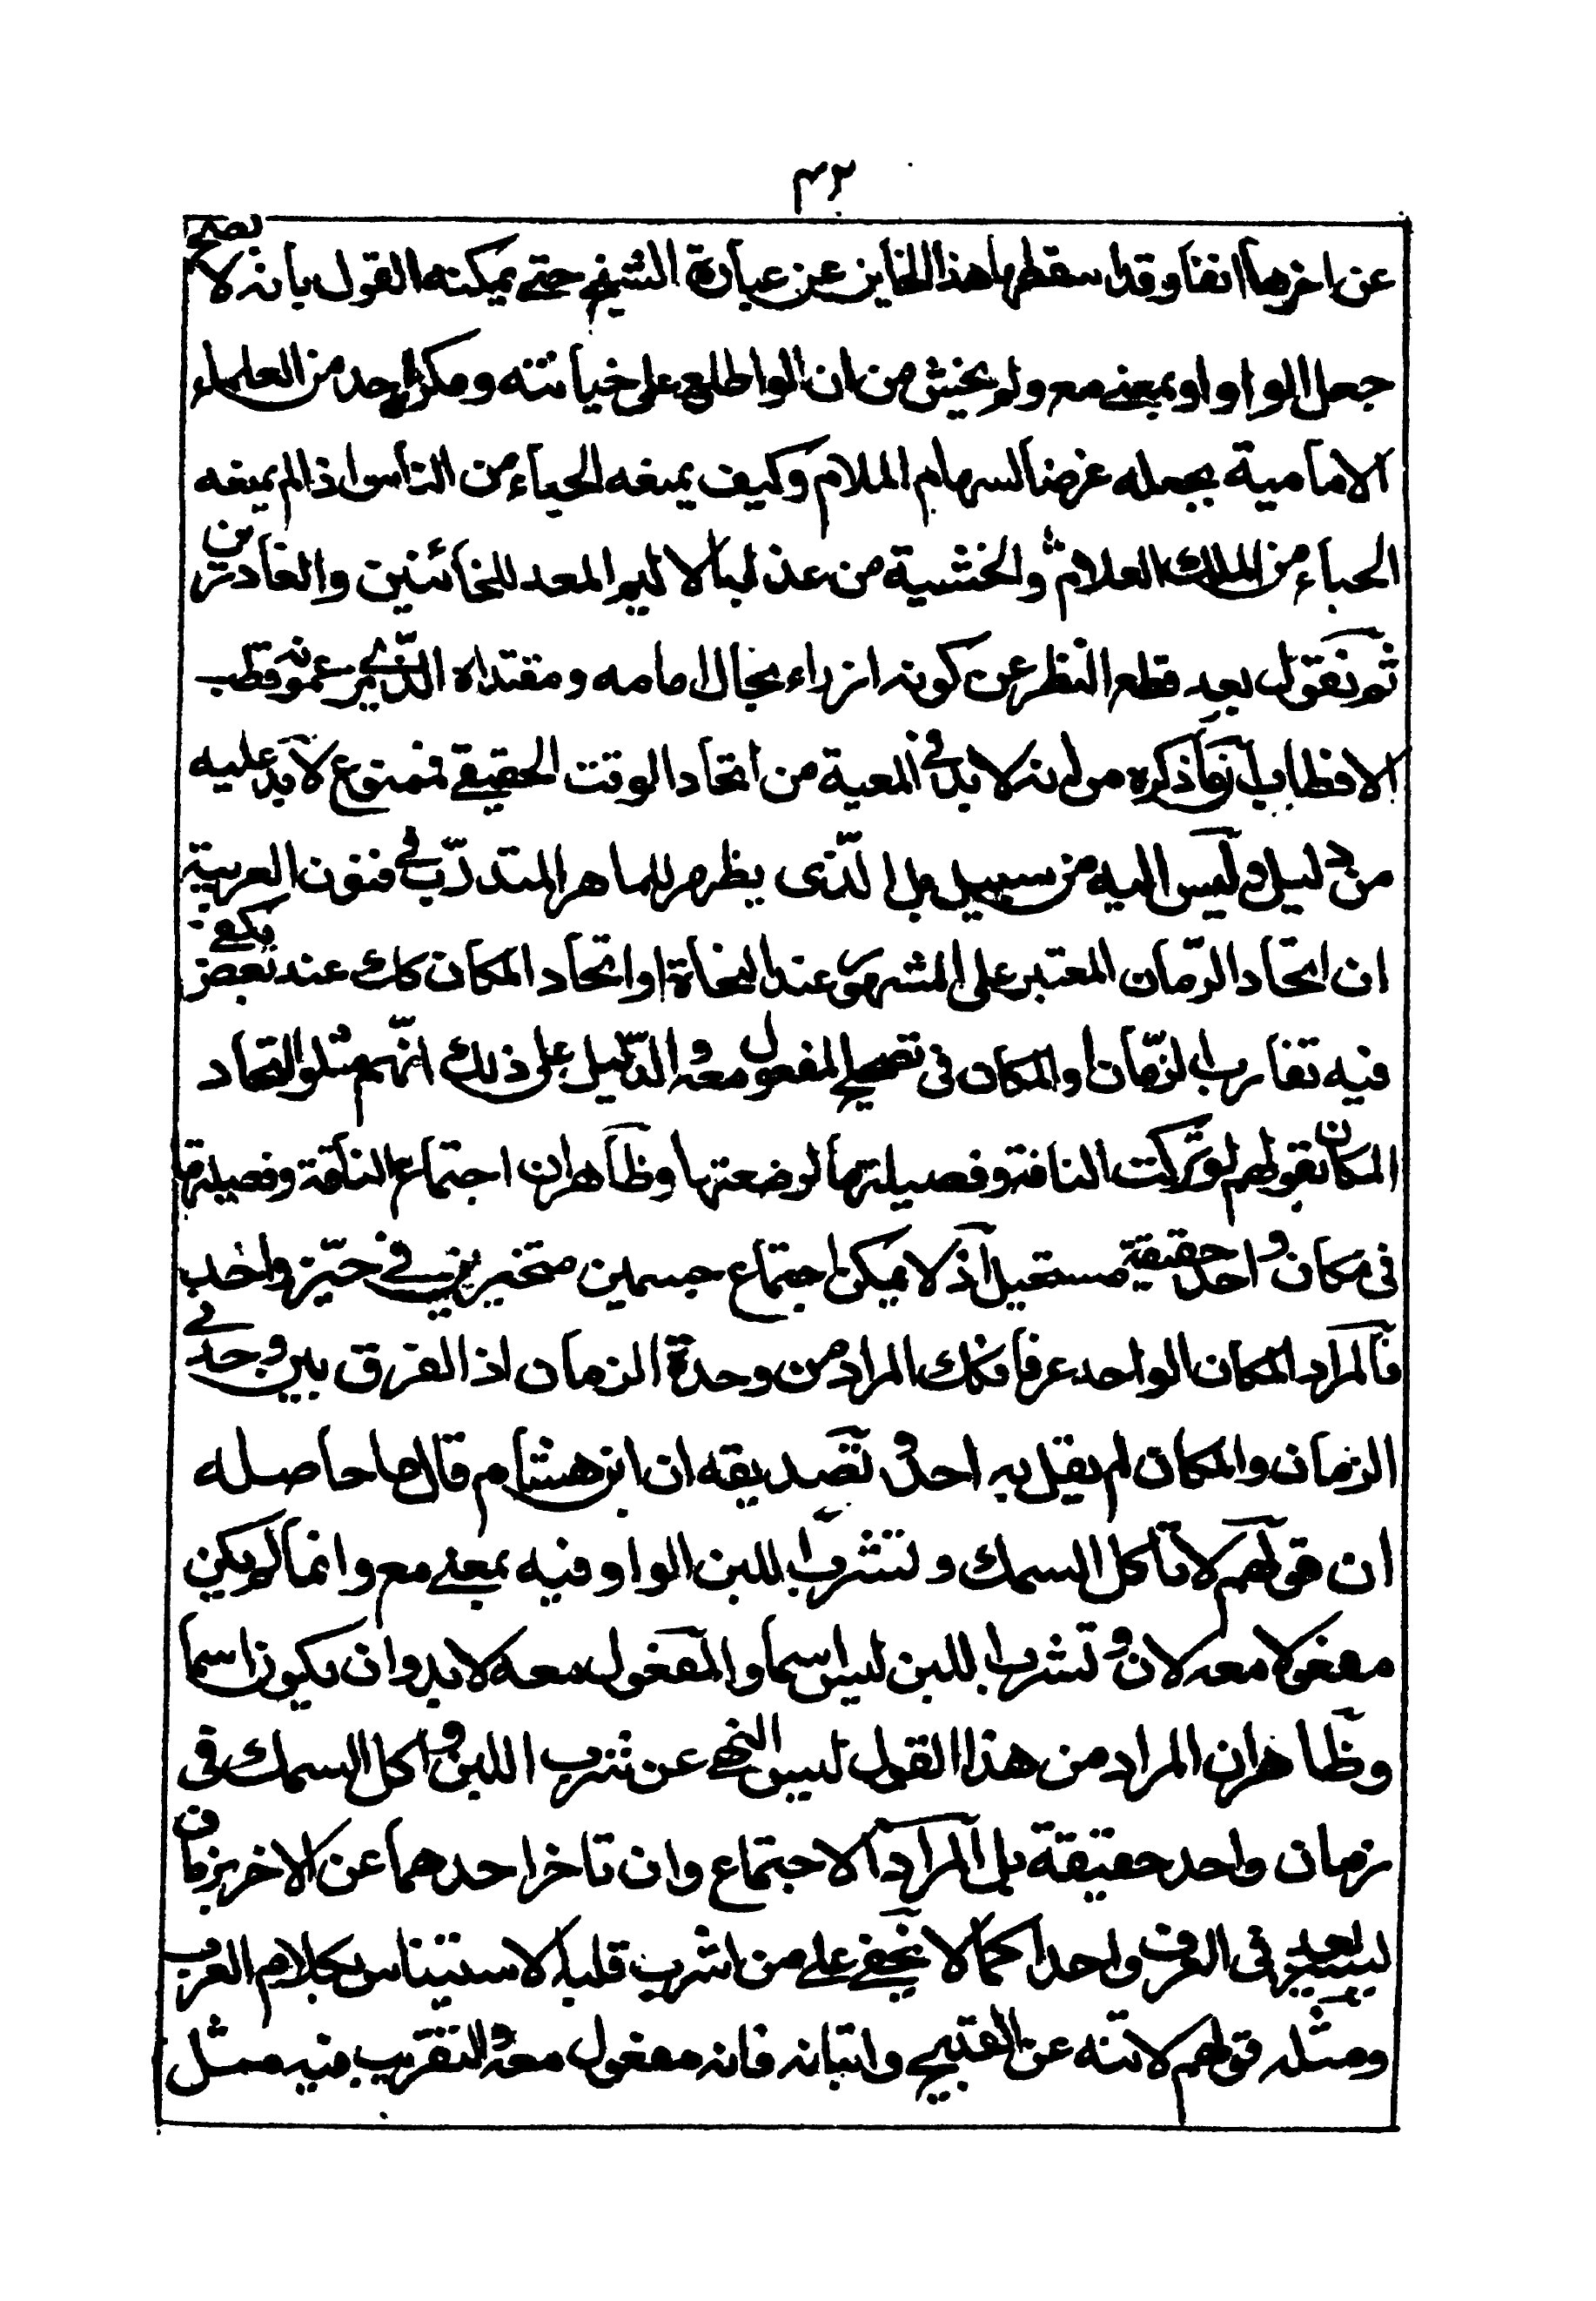 ٣٢
عن اخرها انفا وقد اسقطها هذا الخاين عن عبارة الشيخ حتى يمكنه القول بانه لا يصح
جعل الواو او بمعنى مع ولم يخش من ان لو اطلع على خيانته ومكره احد من العلماء
الامامية يجعله غرضا لسهام الملام وكيف يمنعه الحياء من الناس اذا لم يمنعه
الحياء من الملك العلام والخشية من عذابه الاليم المعد للخائنين والغادرين
ثم نقول بعد قطع النظر عن كونه ازراء بحال امامه ومقتداه الذي زعموه قطب
الاقطاب ان ما ذكره من انه لا بد في المعية من اتحاد الوقت الحقيقي فممنوع لا بد عليه
من دليل وليس اليه من سبيل بل الذى يظهر للماهر المتدرب في فنون العربية
ان اتحاد الزمان المعتبر على المشهور عند النحاة او اتحاد المكان كك عند بعض يكفي
فيه تقارب الزمان او المكان فى تصحيح المفعول معه والدليل على ذلك انهم مثلوا لاتحاد
المكان بقولهم لو تركت الناقة وفصيلتها لرضعتها وظاهر ان اجتماع الناقة وفصيلتها
فى مكان واحد حقيقة مستحيل اذ لا يمكن اجتماع جسمين متحيزين في حيز واحد
فالمراد المكان الواحد عرفا فكك المراد من وحدة الزمان اذ الفرق بين وحدتي
الزمان والمكان لم يقل به احد وتصديقه ان ابن هشام قال ما حاصله
ان قولهم لا تاكل السمك وتشرب اللبن الواو فيه بمعنى مع وانما لم يكن
مفعولا معه لان وتشرب اللبن ليس اسما والمفعول معه لا بد وان يكون اسما
وظاهر ان المراد من هذا القول ليس النهي عن شرب اللبن واكل السمك فى
زمان واحد حقيقة بل المراد الاجتماع وان تاخر احدهما عن الاخر بزمان
يسير يعد فى العرف واحدا كما لا يخفى على من اشرب قلبه الاستيناس بكلام العرب
ومثله قولهم لا تنه عن القبيح واتيانه فانه مفعول معه والتقريب فيه مثل